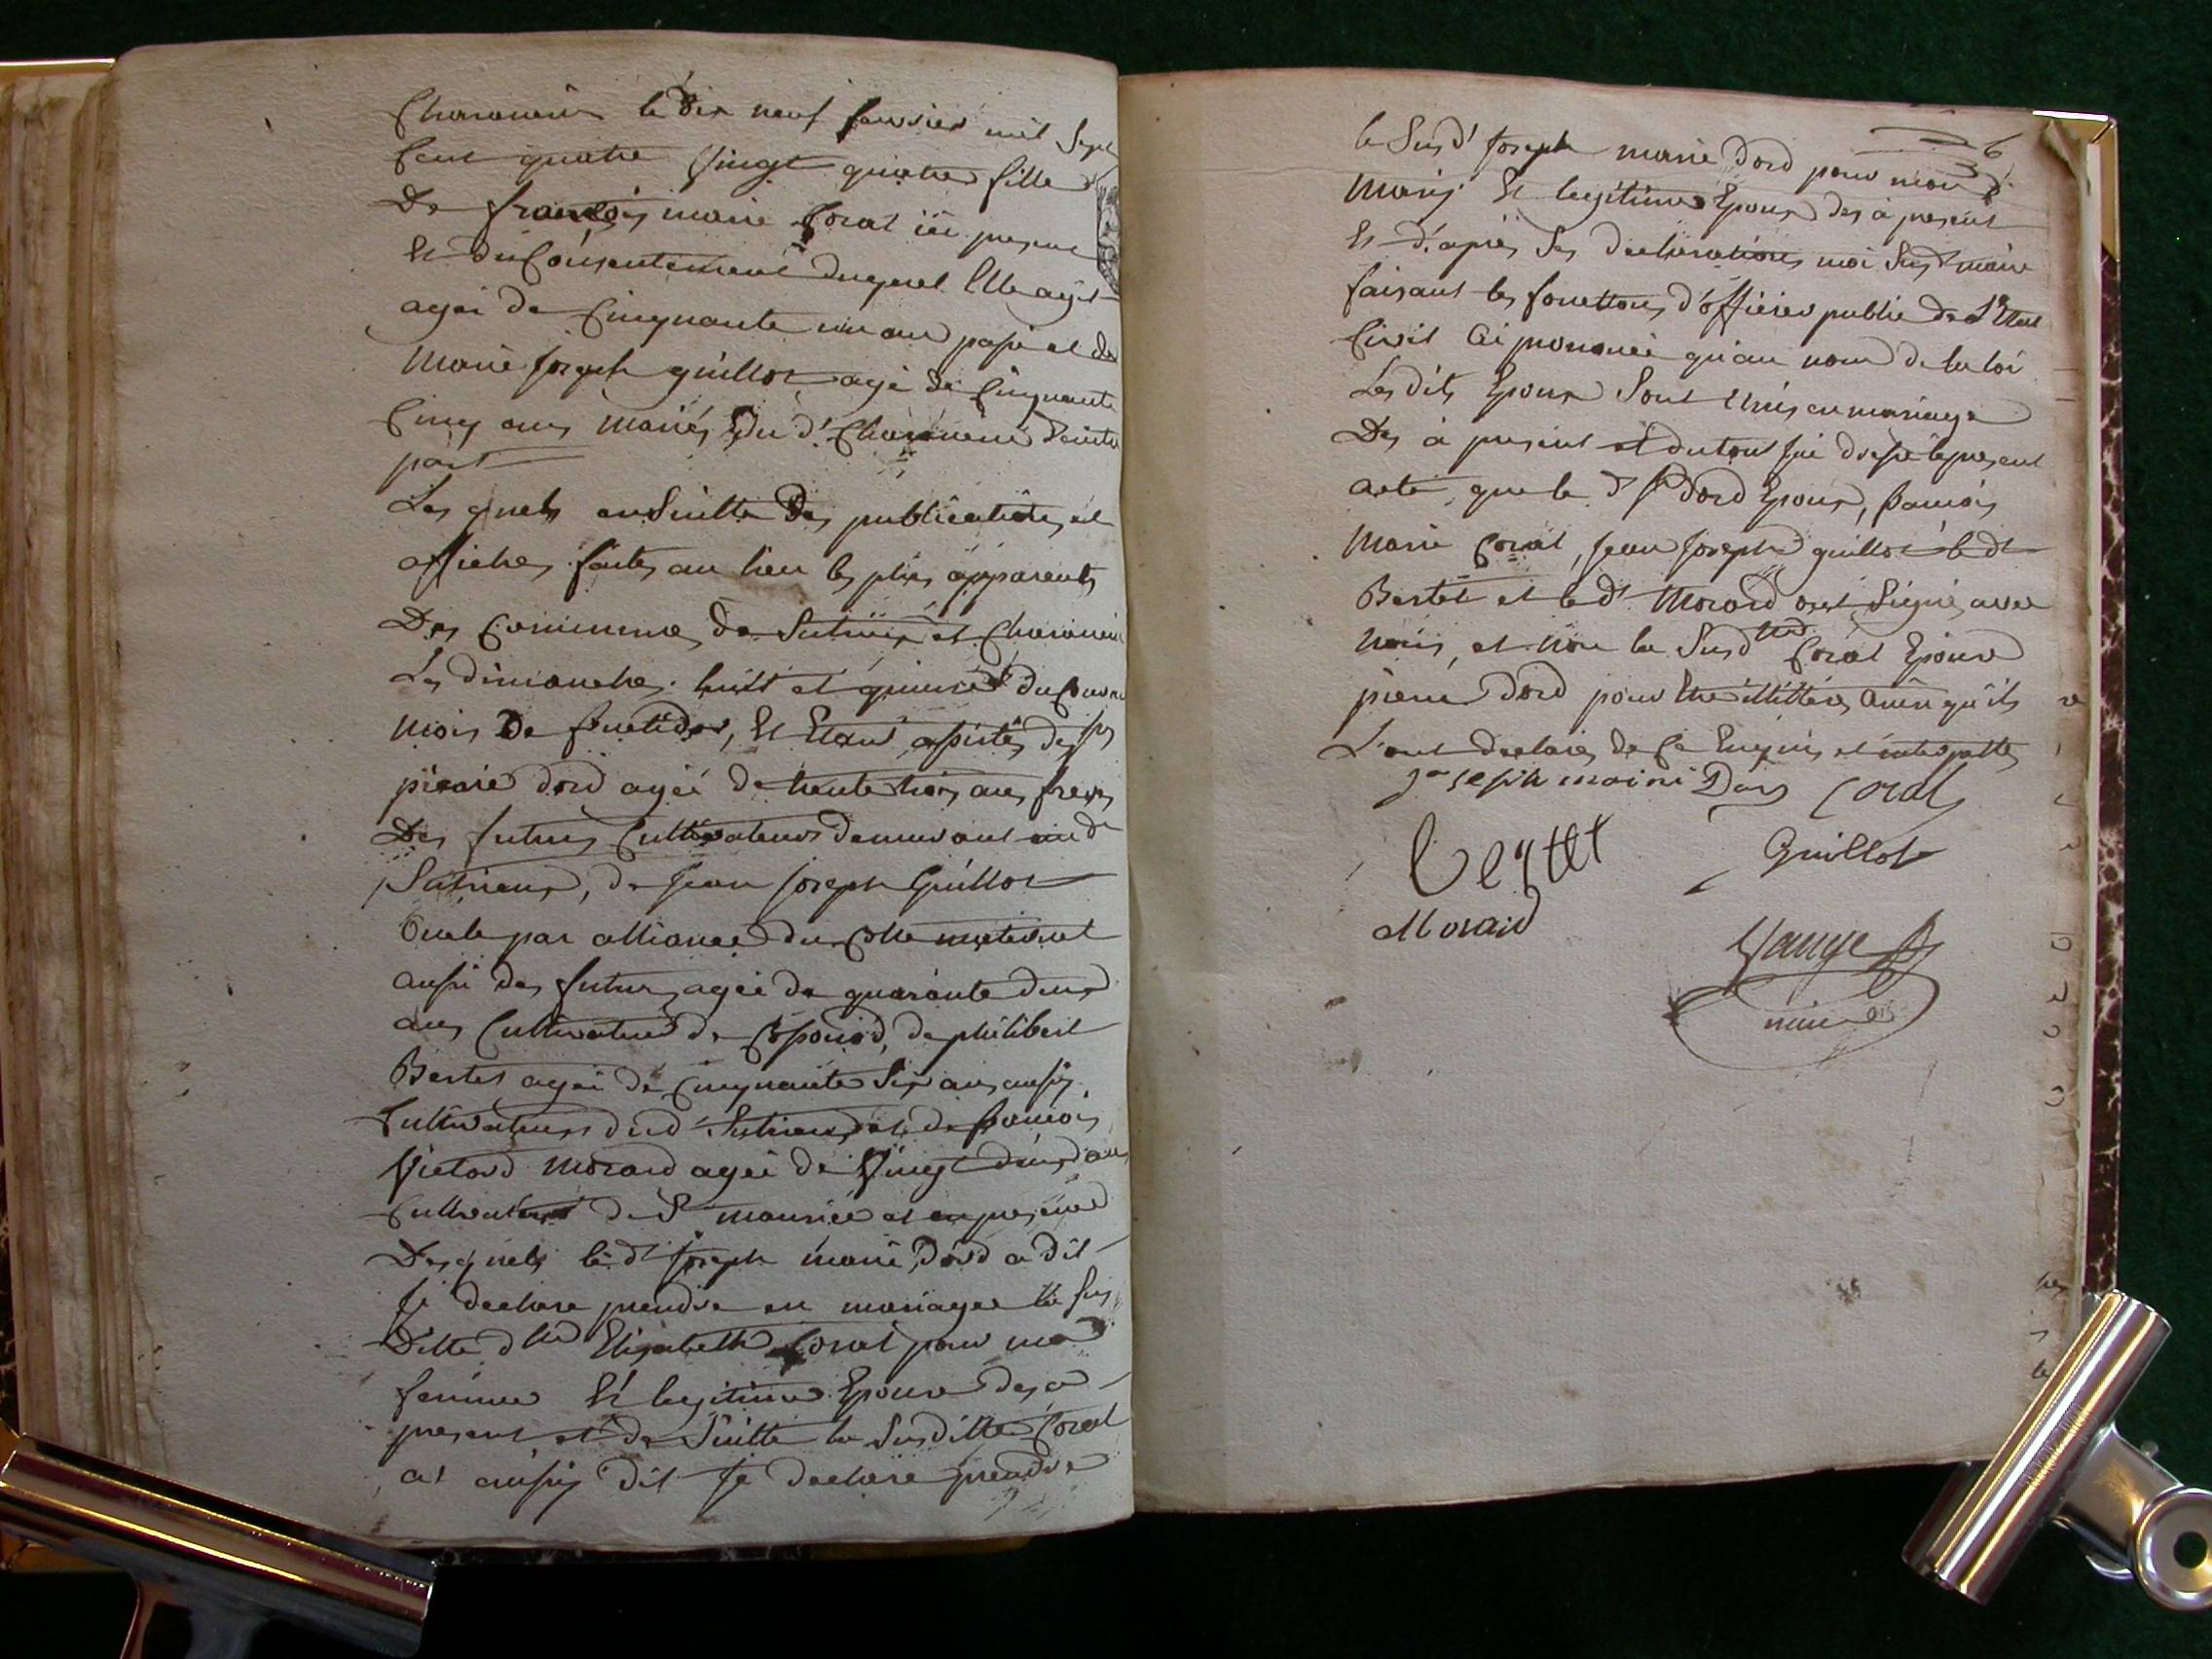 le dix neuf fevrier mil sept
Cent quatre Vingt quatre fille
De françois marie Corat ici present
Et du Consentement duquel Elle agit
agé de Cinquante un ans passé et de
Marie Joseph guillot agé de Cinquante
Cinq ans mariés du d.t d'autre
part
Lesquels en suitte Des publications et
affiches faites au lieu les plus apparents
Des Communes de et
Les dimanches huitt et quinze du Courant
mois De fructidor, Et Etant assistés de
pierre dord agé de trente trois ans frere
Des futurs Cultivateurs demeurant au d.t
de Jean Joseph Guillot
Oncle par alliance du Côtte maternel
aussi des futurs agé de quarante deux
ans Cultivateur de de philibert
Bertet agé de Cinquante Six ans aussi
Cultivateur dud.t et de francois
Victord Morard agé de Vingt deux ans
Cultivateur de S.t maurice et en presence
Desquels le d.t Joseph marie dord a dit
Je declare prendre en mariage la sus
Ditte d.lle Elisabeth Corat pour ma
femme Et legitime Epouse des a
present et de Suitte la Susditte Corat
at aussy dit Je declare prendre
6
le Susd.t Joseph marie dord pour mon
Mary Et legitime Epoux des à present
Et d'après Ses declarations moi Susd.t maire
faisant les fonctions d'officier public de L'Etat
Civil ai prononcé qu'au nom de la loi
Les dits Epoux Sont Unis en mariage
Des à present et du tout J'ai dressé le present
acte, que le d.t Dord Epoux, francois
Marie Corat, Jean Joseph guillot le d.t
Bertet et le d.t Morard ont Signé avec
nous, et non la Susd.tte Corat Epouse
pierre dord pour Etre illitteré ainsi qu'ils
L'ont declaré de Ce Enquis et interpellés
joseph marie Dord Corat
Bertet Guillot
Morard
maire